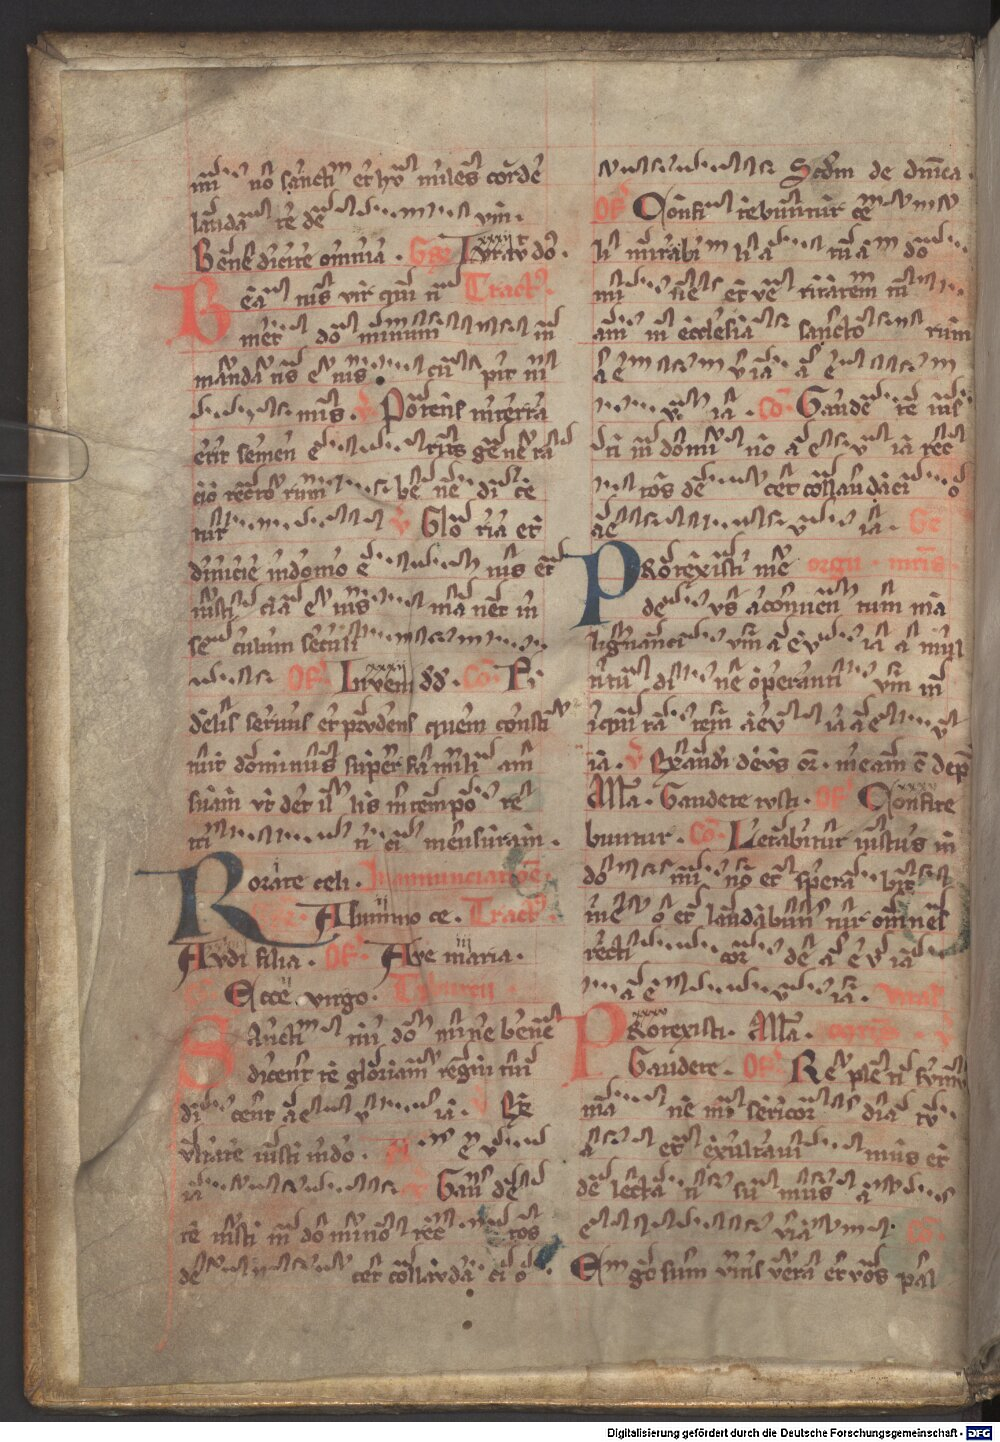 sancti et hu miles corde
lauda te de um.
Benedicite omnia. Iurauit dns.
Beatus vir qui ti Tract9.
met do minum in
manda tis e ius cu pit ni
mis. v Potens in terra
erit semen e ius gene ra
cio rectorum be ne di ce
tur v Glo ria et
diuicie in domo e ius et
iusti cia e ius ma net in
se culum seculi
Of Inueni dd. Co Fi
delis seruus et prudens quem consti
tuit dominus super familiam
suam vt det il lis in tempo re
tri ti ci mensuram.
Rorate celi. In annunciatione
A summo ce. Tract9
Audi filia. Of Aue maria.
Ecce virgo. Tyburcii
Sancti tui domine bene
dicent te gloriam regni tui
di cent ae u ia. v Ex
ultate iusti in do. e u
ia Gau de
te iusti in do mino rec tos
de cet collauda ci o.
Scdm de dnica.
Of Confitebuntur ce
li mirabi li a tu a do
mi ne et ve ritatem tu
am in ecclesia sancto rum
a e u ia a e
u ia. Co Gaude te ius
ti in domi no a e u ia rec
tos de cet collaudaci o
ae u ia. Ge
Protexisti me orgii mris
de us a conuen tu ma
lignanci um a e u ia a mul
titu di ne operanti um in
iqui ta tem aeu ia a e u
ia. v Exaudi deus or. meam c dep
Alla. Gaudete iusti. Of Confite
buntur. Co. Letabitur iustus in
do mi no et spera bit
in e o et laudabun tur omnes
recti cor de a e u ia
a e u ia. Vital
Protexisti. Alla.
Gaudete. Of Re ple ti sumus
ma ne mi sericor dia tu
a et exultaui mus et
de lecta ti su mus a
e uia Co.
Ego sum vitis vera et vos pal
Digitalisierung gefördert durch die Deutsche Forschungsgemeinschaft - DFG